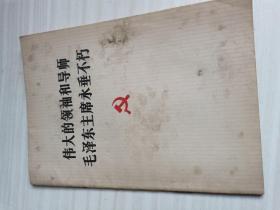 伟大的领袖和导师
毛泽东主席永垂不朽